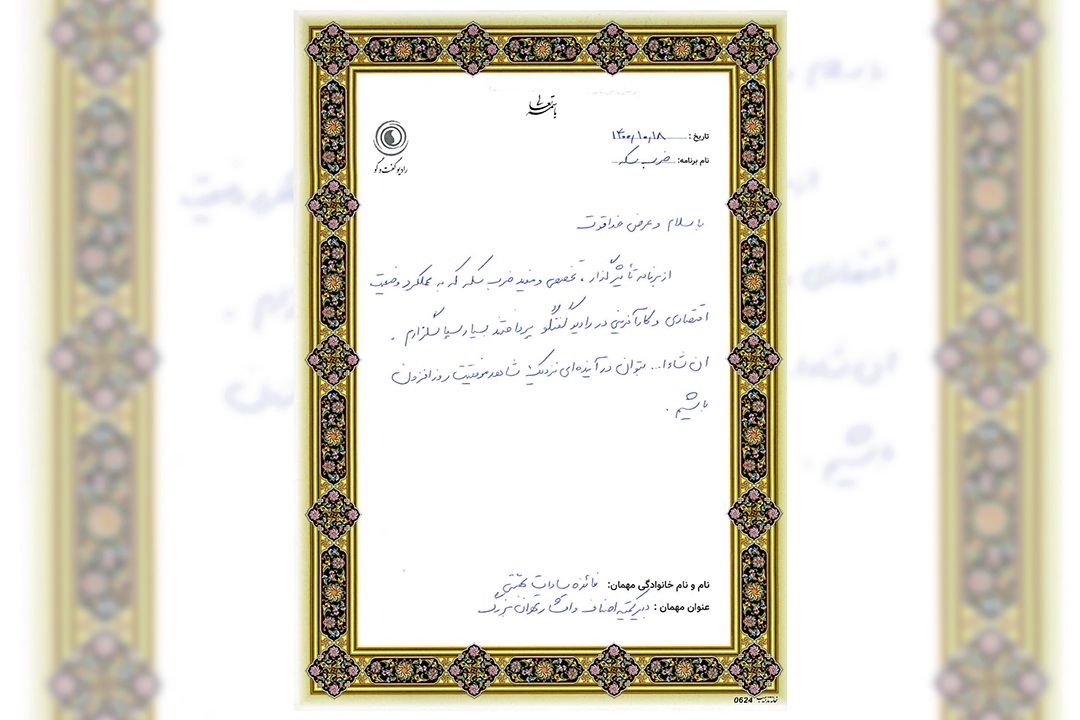 باسمه تعالی
رادیو گفت‌وگو
تاریخ: ۱۴۰۰/۱۰/۱۸
نام برنامه: ضرب سکه
با سلام و عرض خداقوت
از برنامه تأثیرگذار، تخصصی و مفید ضرب سکه که به عملکرد وضعیت
اقتصادی و کارآفرینی در رادیو گفتگو پرداختند بسیار سپاسگزارم.
ان شاءا... بتوان در آینده‌ای نزدیک شاهد موفقیت روزافزون
باشیم.
نام و نام خانوادگی مهمان: فائزه سادات
عنوان مهمان: دبیر کمیته اصناف و اقشار تهران بزرگ
0624